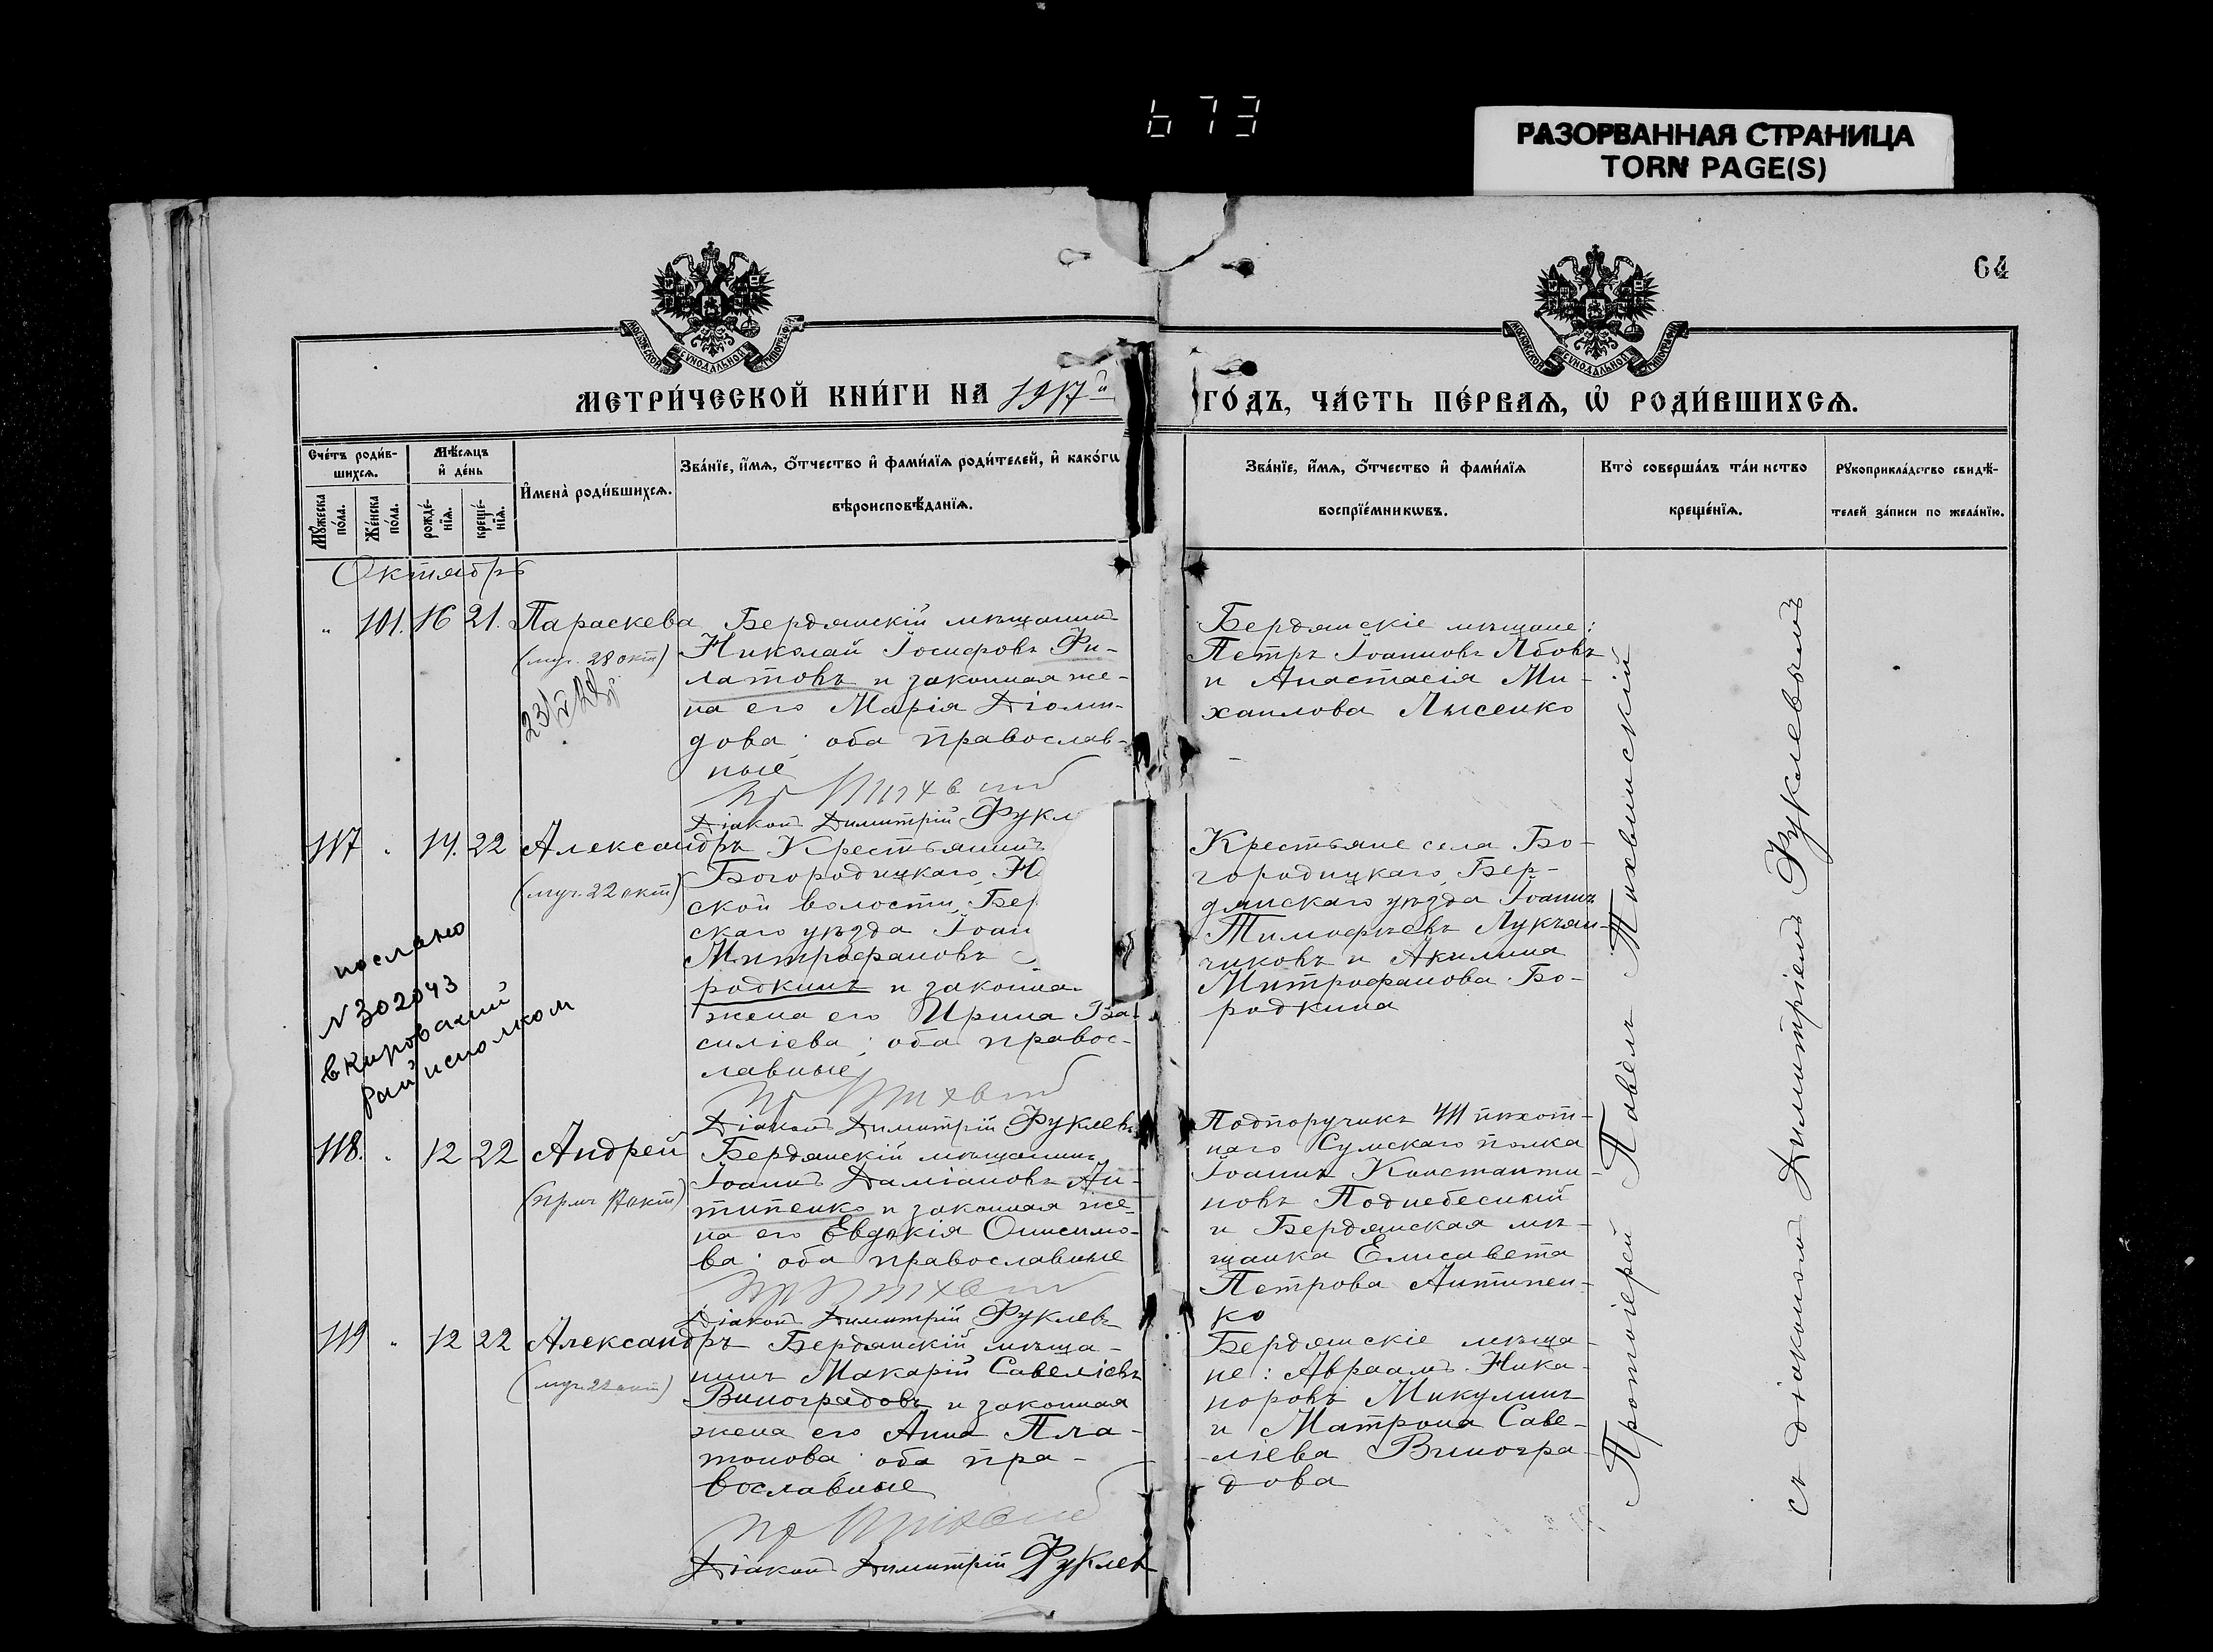 673
РАЗОРВАННАЯ СТРАНИЦА
TORN PAGE(S)
64
МОСКОВСКОЙ СѴНОДАЛЬНОЙ ТИПОГРАФІИ
МОСКОВСКОЙ СѴНОДАЛЬНОЙ ТИПОГРАФІИ
МЕТРИ́ЧЕСКОЙ КНИ́ГИ НА 1917й
ГО́ДЪ, ЧА́СТЬ ПЕ́РВАѦ, Ѡ҆ РОДИ́ВШИХСѦ.
Сче́тъ роди́в-
шихсѧ.
Мꙋ́жеска по́ла.
Же́нска по́ла.
Мѣ́сѧцъ
и҆ де́нь
рожде́-
нїѧ.
креще́-
нїѧ.
И҆мена̀ роди́вшихсѧ.
Зва́нїе, и҆́мѧ, ѻ҆́тчество и҆ фами́лїѧ роди́телей, и҆ како́гѡ
вѣроисповѣ́данїѧ.
Зва́нїе, и҆́мѧ, ѻ҆́тчество и҆ фами́лїѧ
воспрїе́мникѡвъ.
Кто̀ соверша́лъ та́инство
креще́нїѧ.
Рꙋкоприкла́дство свидѣ́-
телей за́писи по жела́нїю.
Октябрь
" 101. 16 21. Параскева
(муч. 28 окт)
Бердянскій мѣщанинъ
Николай Іосифовъ Фи-
латовъ и законная же-
на его Марія Діоми-
дова; оба православ-
ные
пр Тихвин
Діаконъ Димитрій Фукл
Бердянскіе мѣщане:
Петръ Іоанновъ Лбовъ
и Анастасія Ми-
хаилова Лысенко
117 " 14. 22 Александръ
(муч. 22 окт)
послано
N 302043
в Кировский
Райисполком
Крестьянинъ
Богородицкаго, Н
ской волости, Бер
скаго уѣзда Іоан
Митрофановъ
родкинъ и законна
жена его Ирина Ва-
силіева; оба правос-
лавные
пр Тихвин
Діаконъ Димитрій Фуклевъ
Крестьяне села Бо-
городицкаго, Бер-
дянскаго уѣзда Іоаннъ
Тимофѣевъ Лукьян-
чиковъ и Акилина
Митрофанова Бо-
родкина
118. " 12 22 Андрей
(прм 17 окт)
Бердянскій мѣщанинъ
Іоаннъ Даміановъ Ан-
типенко и законная же-
на его Евдокія Онисимо-
ва; оба православные
пр Тихвин
Діаконъ Димитрій Фуклевъ
Подпоручикъ пѣхот-
наго Сумскаго полка
Іоаннъ Константи-
новъ Поднебесный
и Бердянская мѣ-
щанка Елисавета
Петрова Антипен-
ко
119 " 12 22 Александръ
(муч. 22 окт)
Бердянскій мѣща-
нинъ Макарій Савеліевъ
Виноградовъ и законная
жена его Анна Пла-
тонова; оба пра-
вославные
пр Тихвин
Діаконъ Димитрій Фуклевъ
Бердянскіе мѣща-
не: Авраамъ Ника-
норовъ Микулинъ
и Матрона Саве-
ліева Виногра-
дова
Протоіерей Павелъ Тихвинскій
съ діакономъ Димитріемъ Фуклевымъ